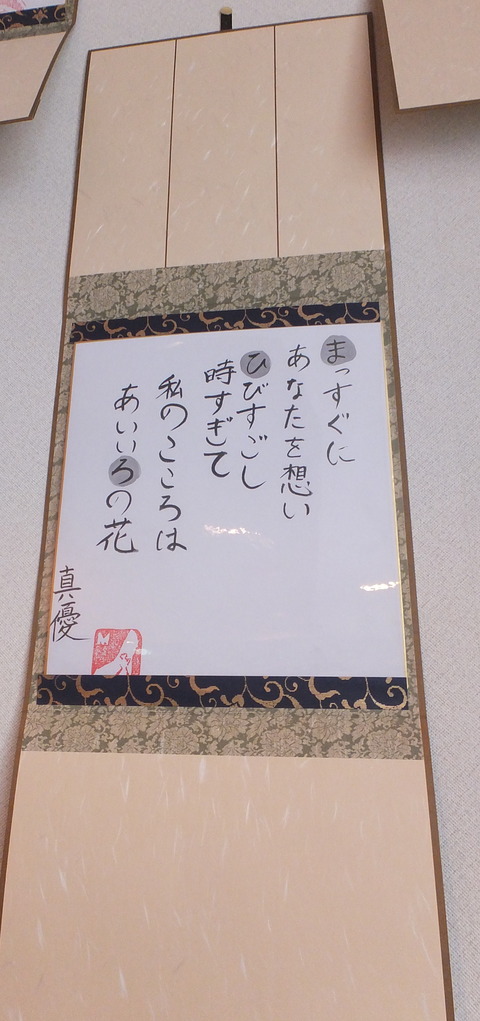 まっすぐに
あなたを想い
ひびすごし
時すぎて
私のこころは
あいいろの花
真優